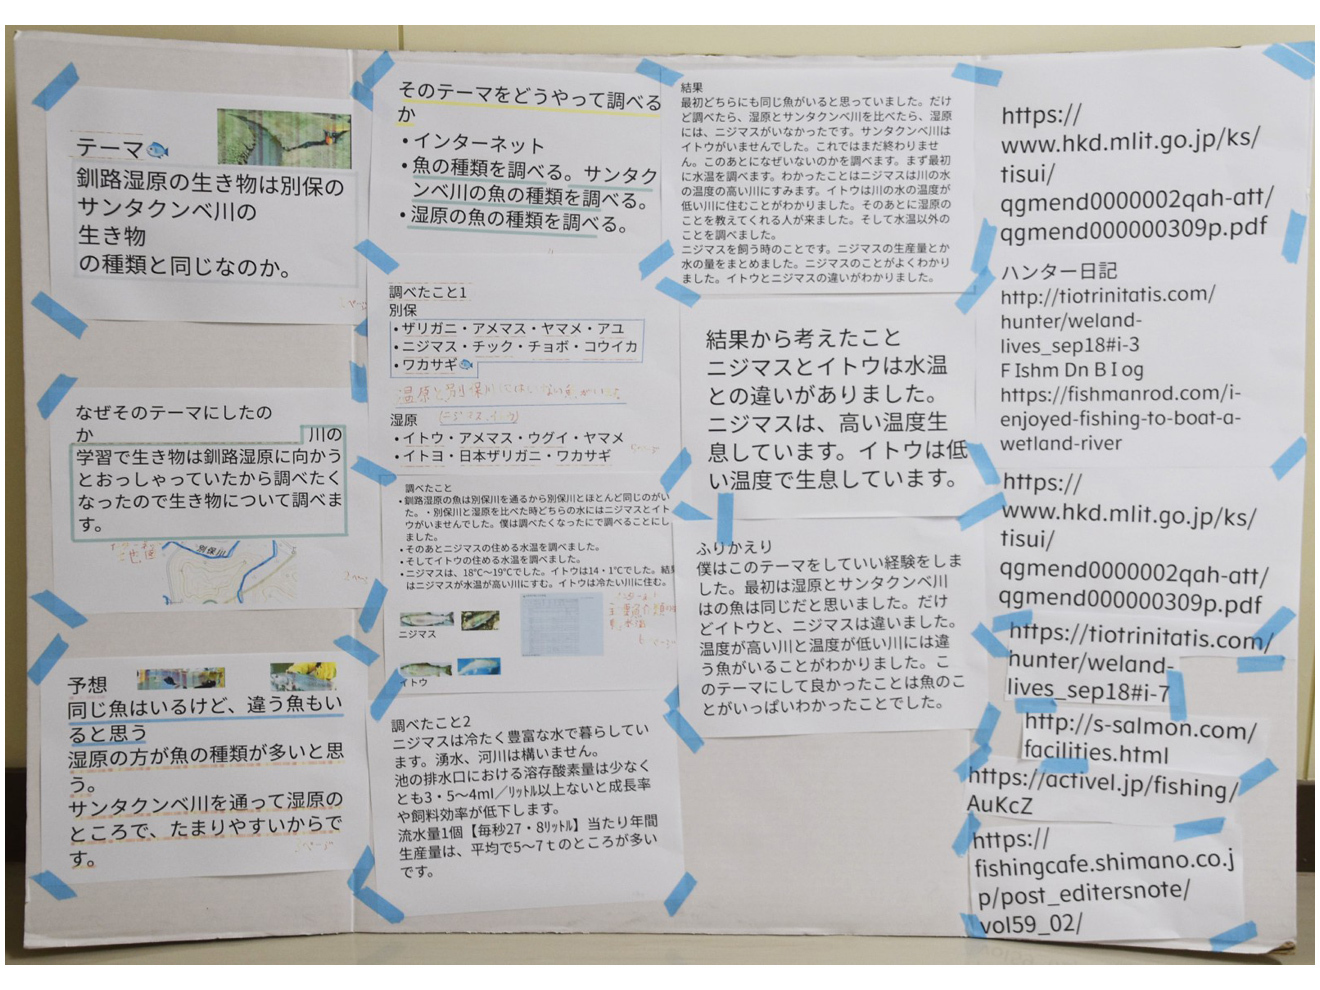 テーマ
釧路湿原の生き物は別保の
サンタクンベ川の
生き物
の種類と同じなのか。
なぜそのテーマにしたの
か
川の
学習で生き物は釧路湿原に向かう
とおっしゃっていたから調べたく
なったので生き物について調べま
す。
別保川
予想
同じ魚はいるけど、違う魚もい
ると思う
湿原の方が魚の種類が多いと思
う。
サンタクンベ川を通って湿原の
ところで、たまりやすいからで
す。
そのテーマをどうやって調べる
か
・インターネット
・魚の種類を調べる。サンタク
ンベ川の魚の種類を調べる。
・湿原の魚の種類を調べる。
調べたこと1
別保
・ザリガニ・アメマス・ヤマメ・アユ
・ニジマス・チック・チョボ・コウイカ
・ワカサギ
湿原
(ニジマス、イトウ)
・イトウ・アメマス・ウグイ・ヤマメ
・イトヨ・日本ザリガニ・ワカサギ
調べたこと
・釧路湿原の魚は別保川を通るから別保川とほとんど同じのがい
た。・別保川と湿原を比べた時どちらの水にはニジマスとイト
ウがいませんでした。僕は調べたくなったにで調べることにし
ました。
・そのあとニジマスの住める水温を調べました。
・そしてイトウの住める水温を調べました。
・ニジマスは、18℃〜19℃でした。イトウは14・1℃でした。結果
はニジマスが水温が高い川にすむ。イトウは冷たい川に住む。
ニジマス
イトウ
調べたこと2
ニジマスは冷たく豊富な水で暮らしてい
ます。湧水、河川は構いません。
池の排水口における溶存酸素量は少なく
とも3・5〜4ml／ﾘｯﾄﾙ以上ないと成長率
や飼料効率が低下します。
流水量1個【毎秒27・8ﾘｯﾄﾙ】当たり年間
生産量は、平均で5〜7ｔのところが多い
です。
結果
最初どちらにも同じ魚がいると思っていました。だけ
ど調べたら、湿原とサンタクンベ川を比べたら、湿原
には、ニジマスがいなかったです。サンタクンベ川は
イトウがいませんでした。これではまだ終わりませ
ん。このあとになぜいないのかを調べます。まず最初
に水温を調べます。わかったことはニジマスは川の水
の温度の高い川にすみます。イトウは川の水の温度が
低い川に住むことがわかりました。そのあとに湿原の
ことを教えてくれる人が来ました。そして水温以外の
ことを調べました。
ニジマスを飼う時のことです。ニジマスの生産量とか
水の量をまとめました。ニジマスのことがよくわかり
ました。イトウとニジマスの違いがわかりました。
結果から考えたこと
ニジマスとイトウは水温
との違いがありました。
ニジマスは、高い温度生
息しています。イトウは低
い温度で生息しています。
ふりかえり
僕はこのテーマをしていい経験をしま
した。最初は湿原とサンタクンベ川
はの魚は同じだと思いました。だけ
どイトウと、ニジマスは違いました。
温度が高い川と温度が低い川には違
う魚がいることがわかりました。こ
のテーマにして良かったことは魚のこ
とがいっぱいわかったことでした。
https://
www.hkd.mlit.go.jp/ks/
tisui/
qgmend0000002qah-att/
qgmend000000309p.pdf
ハンター日記
http://tiotrinitatis.com/
hunter/weland-
lives_sep18#i-3
F Ishm Dn B I og
https://fishmanrod.com/i-
enjoyed-fishing-to-boat-a-
wetland-river
https://
www.hkd.mlit.go.jp/ks/
tisui/
qgmend0000002qah-att/
qgmend000000309p.pdf
https://tiotrinitatis.com/
hunter/weland-
lives_sep18#i-7
http://s-salmon.com/
facilities.html
https://activel.jp/fishing/
AuKcZ
https://
fishingcafe.shimano.co.j
p/post_editersnote/
vol59_02/